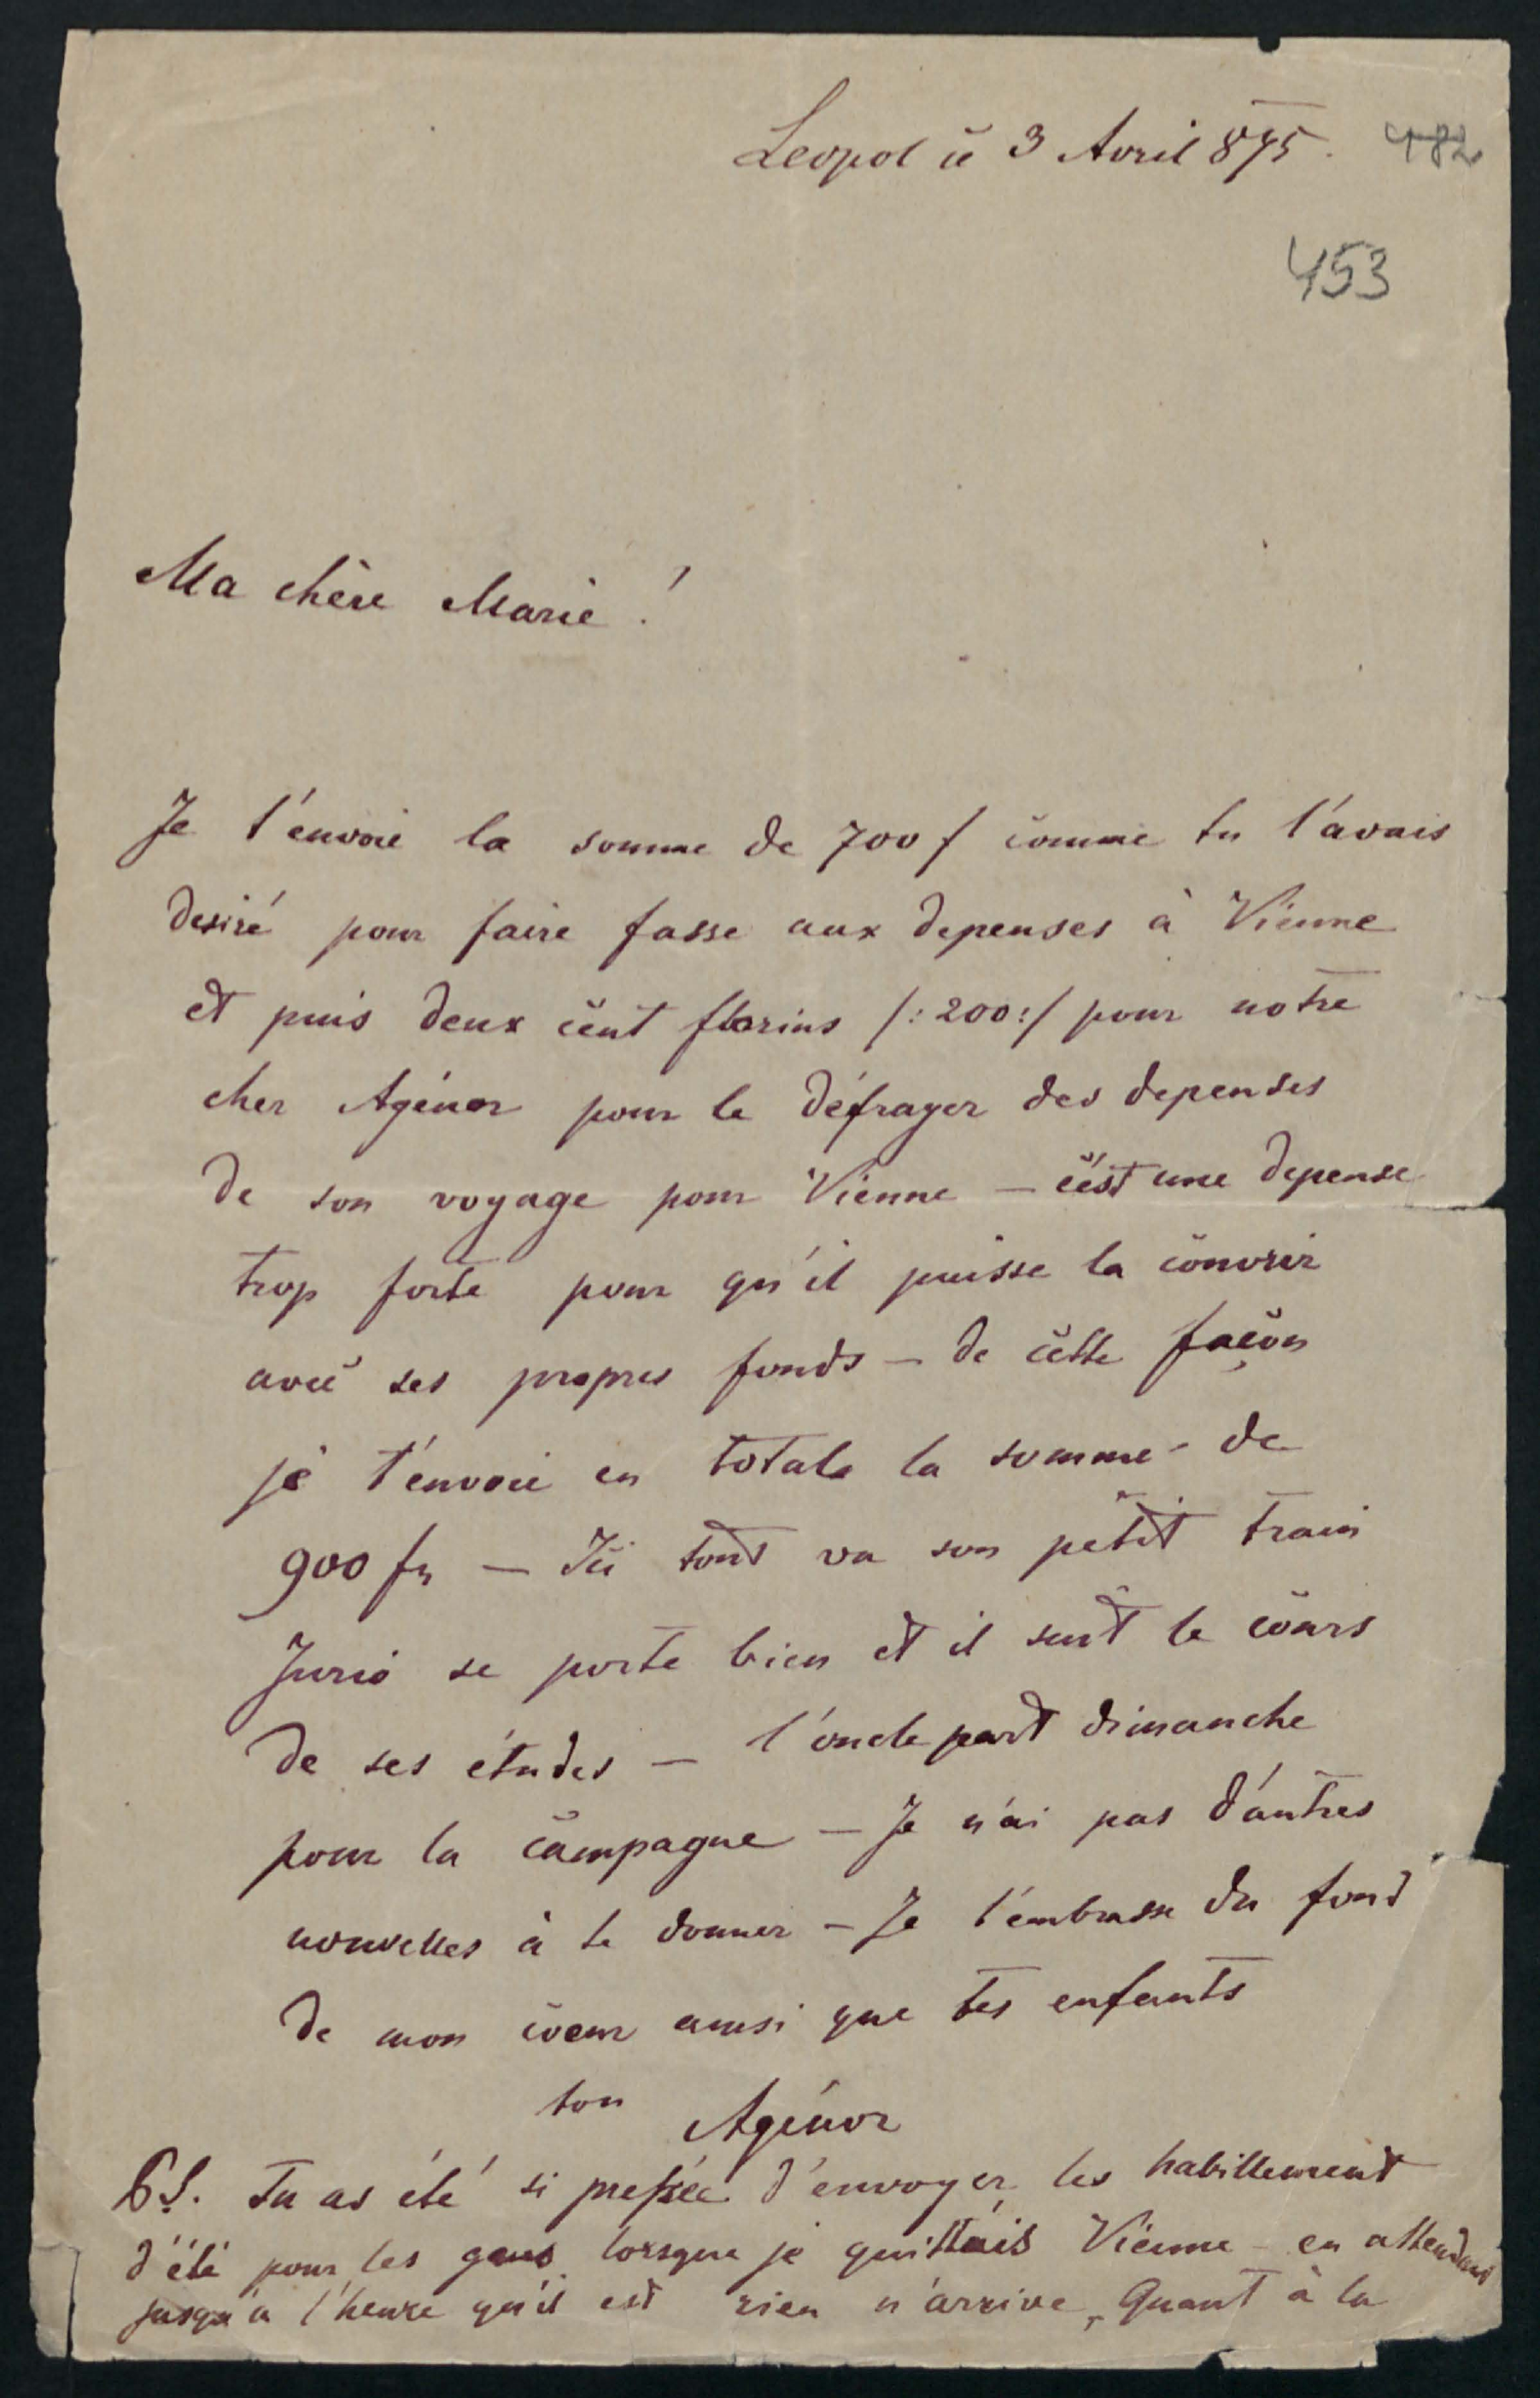 Leopol ce 3 Avril 875. 482
453
Ma chère Marie !
Je t'envoie la somme de 700 f comme tu l'avais
desiré pour faire fasse aux depenses à Vienne
et puis deux cent florins /: 200 :/ pour notre
cher Agénor pour le défrayer des depenses
de son voyage pour Vienne — c'est une depense
trop forte pour qu'il puisse la couvrir
avec ses propres fonds — de cette façon
je t'envoie en totale la somme de
900 fn — Ici tout va son petit train
Jurio se porte bien et il suit le cours
de ses études — l'oncle part dimanche
pour la campagne — Je n'ai pas d'autres
nouvelles à te donner — Je t'embrasse du fond
de mon coeur ainsi que tes enfants
ton Agénor
PS. Tu as été si pressée d'envoyer les habillement
d'été pour les gens lorsque je quittais Vienne — en attendant
jusqu'à l'heure qu'il est rien n'arrive, Quant à la